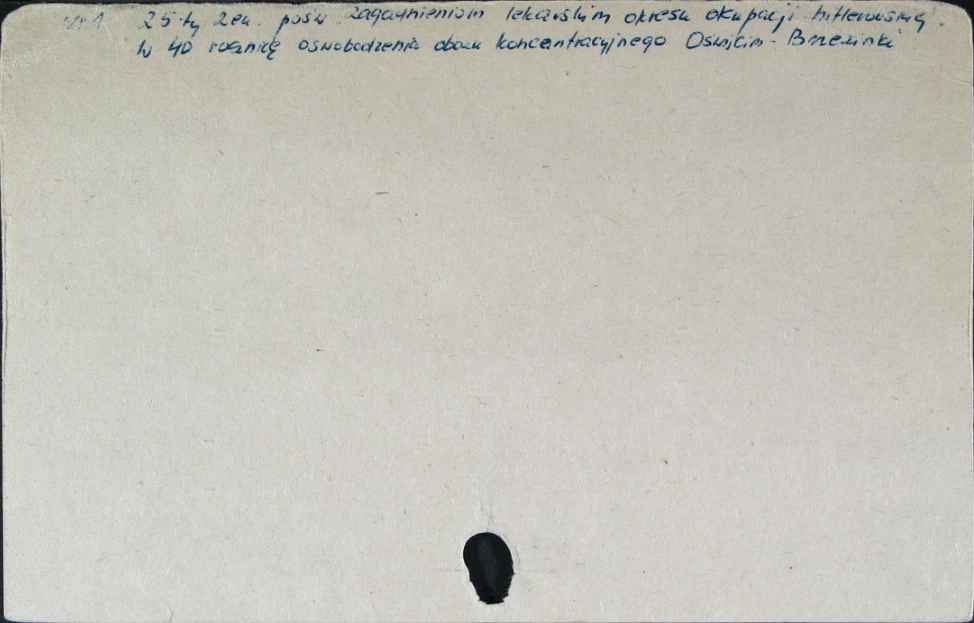 nr 1 25-ty zesz. pośw. zagadnieniom lekarskim okresu okupacji hitlerowskiej.
W 40 rocznicę oswobodzenia obozu koncentracyjnego Oświęcim-Brzezinki